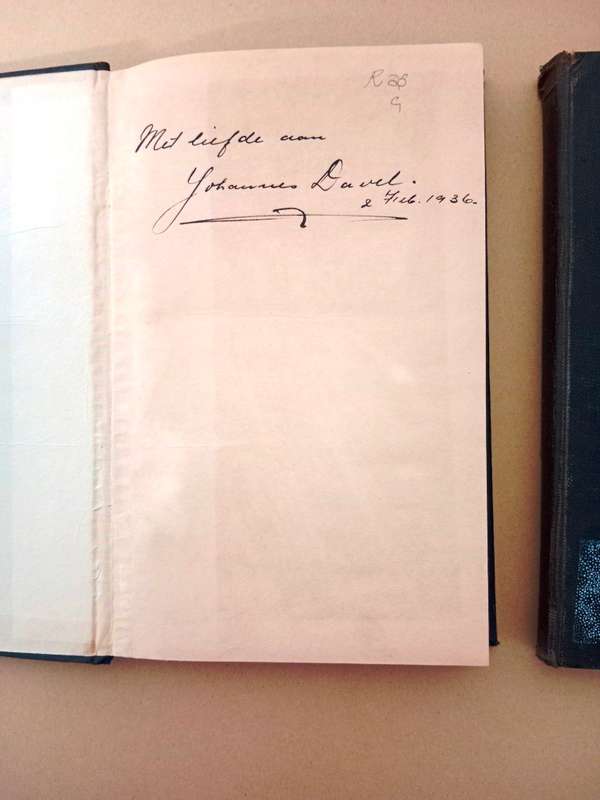 R 28
G
Met liefde aan
Johannes Davel.
2 Feb. 1936.